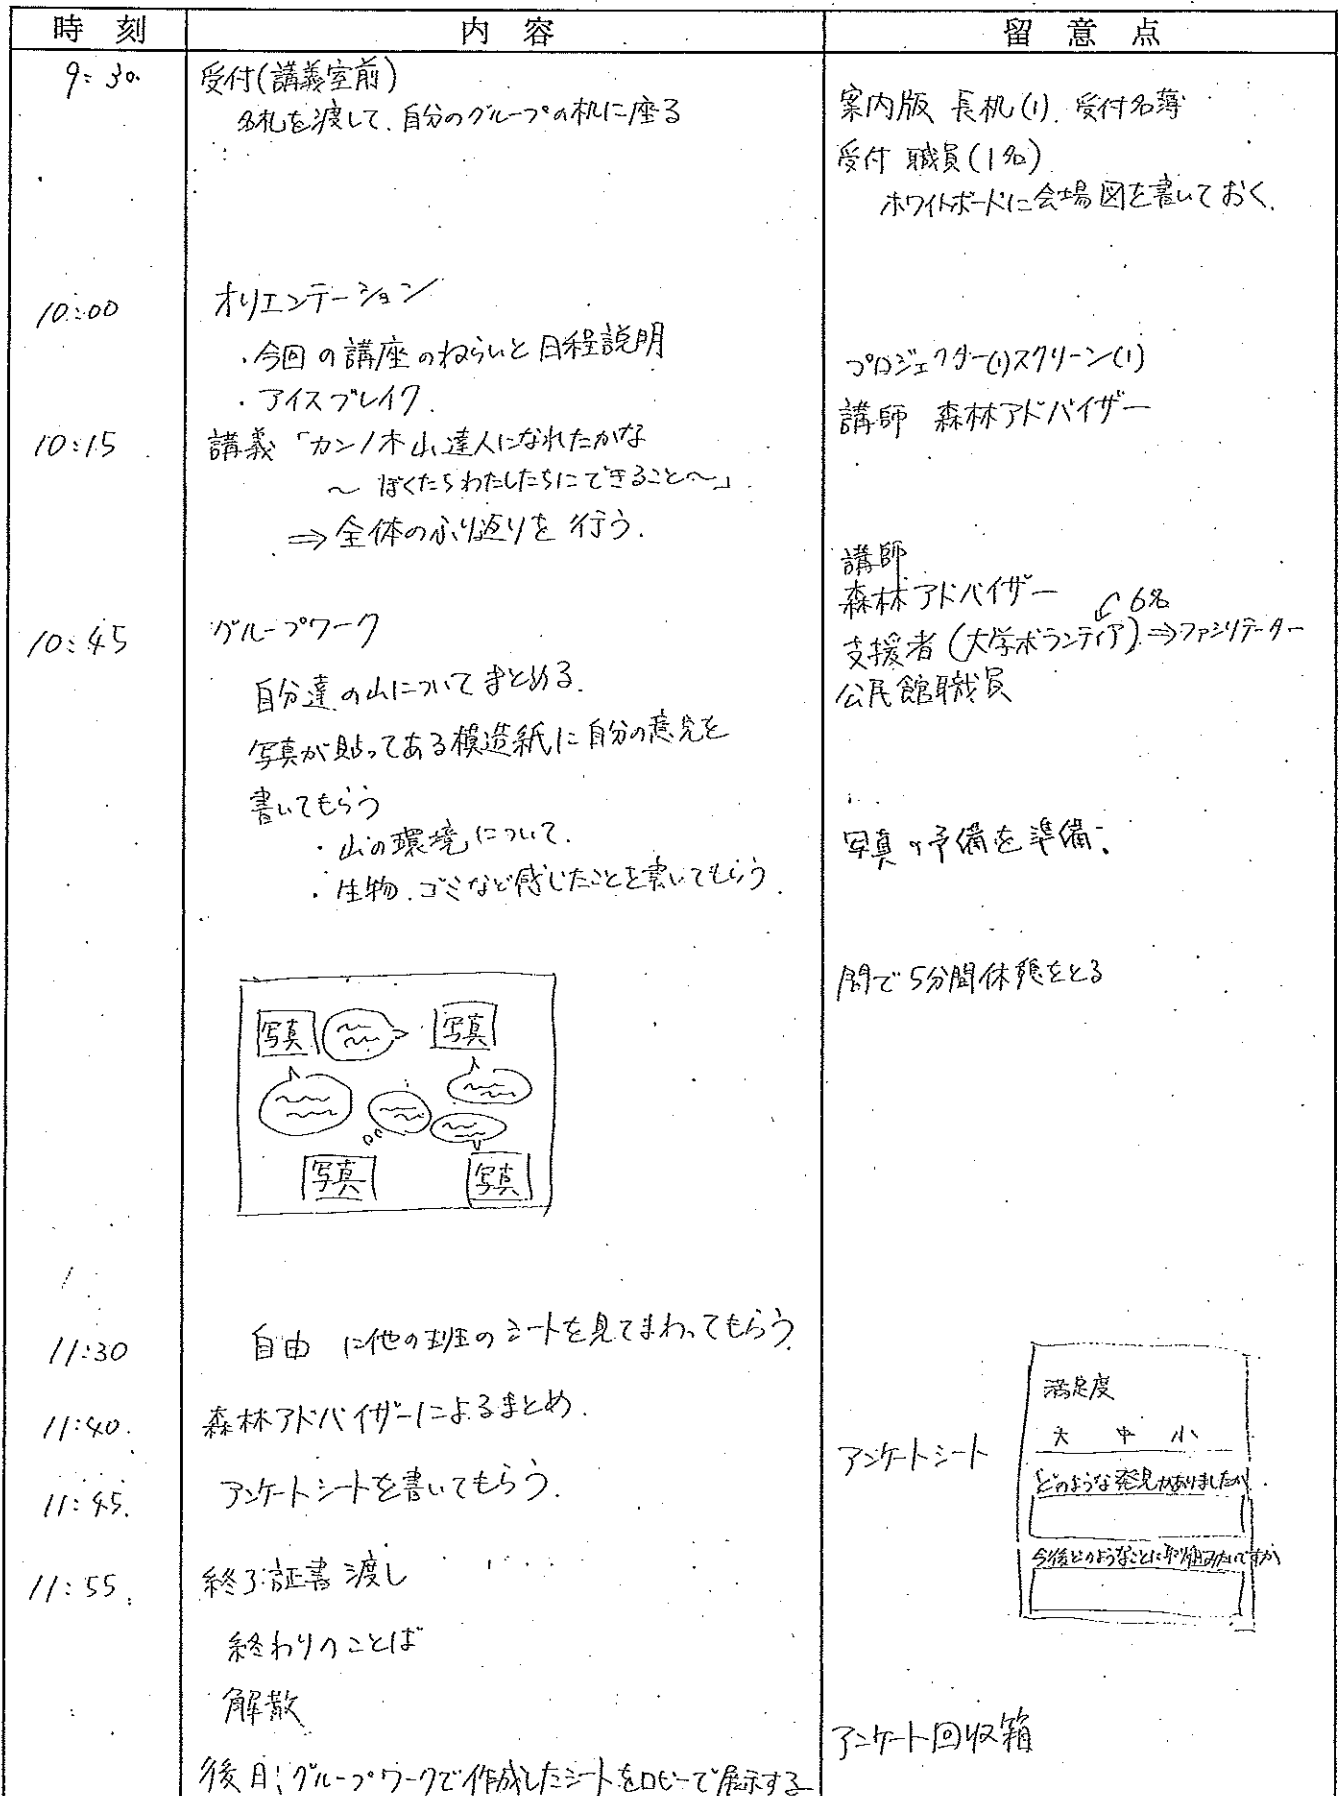 時刻 内容 留意点
9:30 受付(講義室前)
名札を渡して、自分のグループの机に座る
案内版 長机(1) 受付名簿
受付 職員(1名)
ホワイトボードに会場図を書いておく.
10:00 オリエンテーション
・今回の講座のねらいと日程説明
・アイスブレイク.
プロジェクター(1)スクリーン(1)
講師 森林アドバイザー
10:15 講義「カンノ木山達人になれたかな
～ ぼくたちわたしたちにできること～」
⇒全体のふり返りを行う.
講師
森林アドバイザー
6名
支援者(大学ボランティア)⇒ファシリテーター
公民館職員
10:45 グループワーク
自分達の山についてまとめる.
写真が貼ってある模造紙に自分の意見を
書いてもらう
・山の環境について.
・生物.ゴミなど感じたことを書いてもらう.
写真の予備を準備.
間で5分間休憩をとる
写真 写真
写真 写真
11:30 自由に他の班のシートを見てまわってもらう.
11:40. 森林アドバイザーによるまとめ.
11:45. アンケートシートを書いてもらう.
アンケートシート
満足度
大 中 小
どのような発見がありましたか.
今後どのようなことに取り組みたいですか
11:55. 終了証書渡し
終わりのことば
解散
アンケート回収箱
後日:グループワークで作成したシートをロビーで展示する